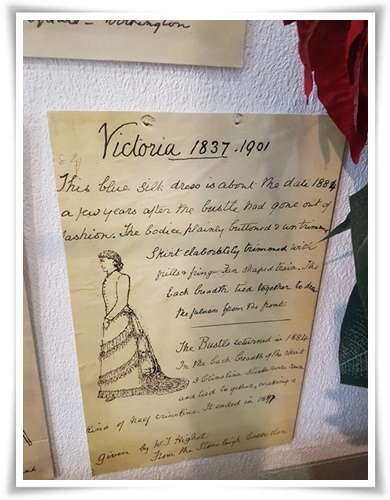 Square - Workington
Victoria 1837-1901
This blue silk dress is about the date 1884
a few years after the bustle had gone out of
fashion. The bodice plainly buttoned & untrimmed
Skirt elaborately trimmed with
frills & fringe Fan shaped train. The
back breadth tied together to draw
the fulness from the front
The Bustle returned in 1884
In the back breadth of the skirt
3 Crinoline Steels were run
and tied together, making a
kind of half crinoline. It ended in 1887
given by W.T. Highet
From the Stoneleigh Collection